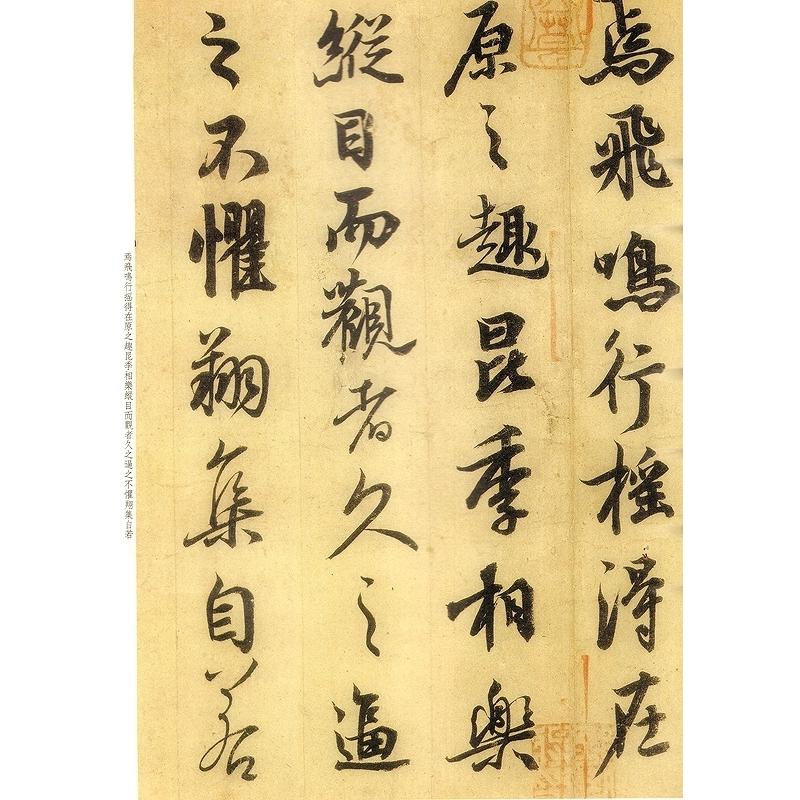 焉飛鳴行摇得在
原之趣昆季相樂
縱目而觀者久之逼
之不懼翔集自若
焉飛鳴行摇得在原之趣昆季相樂縱目而觀者久之逼之不懼翔集自若